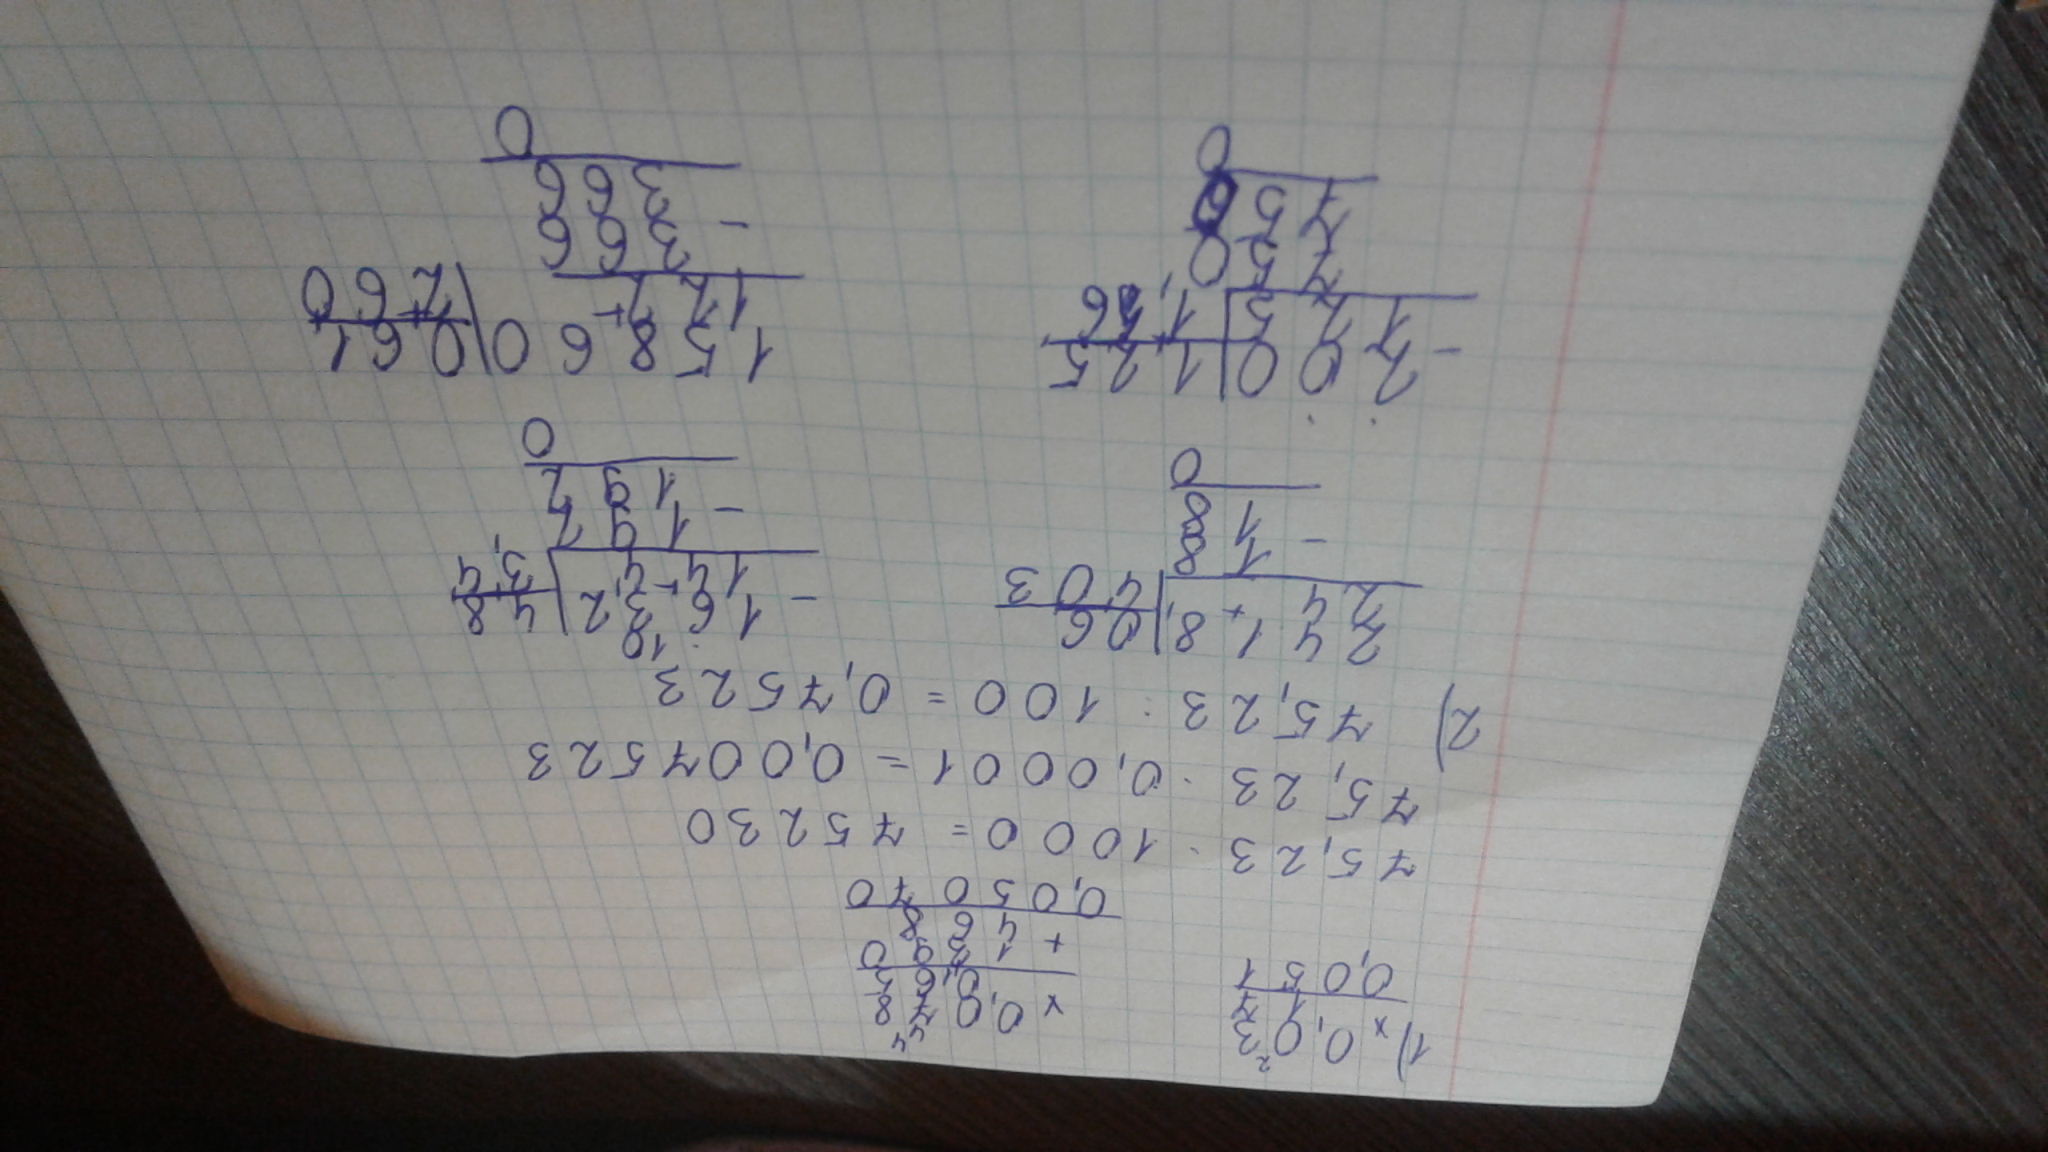 1) × 0,0²3
1 7
0,051
× 0,0⁴7⁴8
0,65
1 3 9 0
+ 4 6 8
0,05070
75,23 · 1000 = 75230
75,23 · 0,0001 = 0,007523
2) 75,23 : 100 = 0,7523
241,8, | 0,6,
24 | 403
- 18
18
0
10
- 1,6,3,2 | 4,8,
144 | 3,4
- 192
192
0
- 200 | 1,25,
125 | 1,6
750
750
0
1,58,60 | 0,61,
122 | 260
- 366
366
0